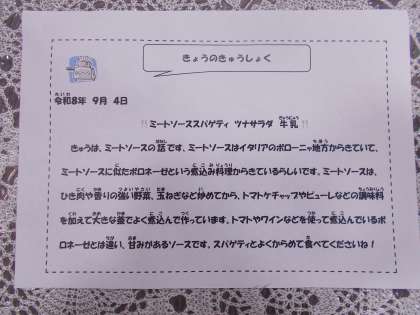 きょうのきゅうしょく
令和8年 9月 4日
ミートソーススパゲティ ツナサラダ 牛乳
きゅうは、ミートソースの話です。ミートソースはイタリアのボローニャ地方からきていて、
ミートソースに似たボロネーゼという煮込み料理からきているらしいです。ミートソースは、
ひき肉や香りの強い野菜、玉ねぎなど炒めてから、トマトケチャップやピューレなどの調味料
を加えて大きな釜でよく煮込んで作っています。トマトやワインなどを使って煮込んでいるボ
ロネーゼとは違い、甘みがあるソースです。スパゲティとよくからめて食べてくださいね！